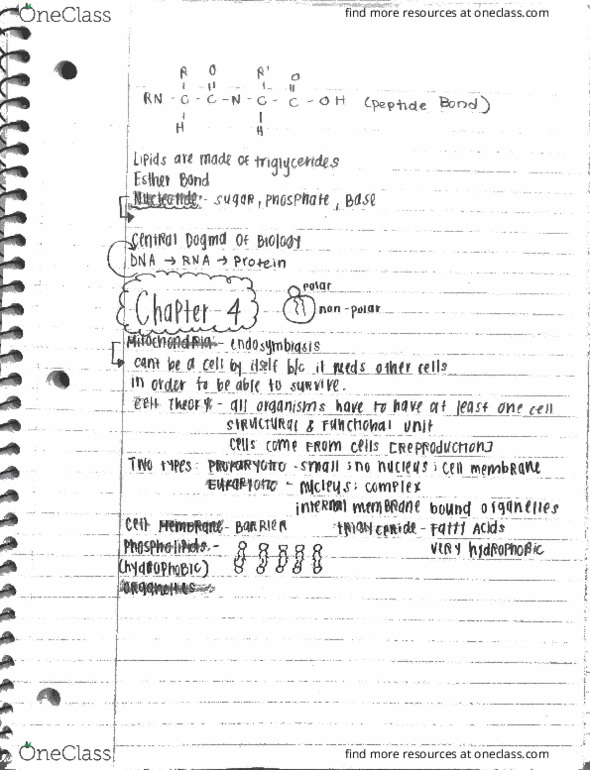 OneClass
find more resources at oneclass.com
R O R' O
RN - C - C - N - C - C - OH (Peptide Bond)
H H
Lipids are made of triglycerides
Esther Bond
Nucleotide - sugar, phosphate, Base
Central Dogma of Biology
DNA → RNA → Protein
polar
Chapter - 4
non-polar
Mitochondria - endosymbiosis
cant be a cell by itself b/c it needs other cells
in order to be able to survive.
Cell Theory - all organisms have to have at least one cell
structural & functional unit
cells come from cells [reproduction]
Two types: Prokaryotic - small; no nucleus; cell membrane
Eukaryotic - nucleus; complex
internal membrane bound organelles
Cell Membrane - Barrier triglyceride - Fatty Acids
Phospholipids - very hydrophobic
(hydrophobic)
Organelles
OneClass
find more resources at oneclass.com